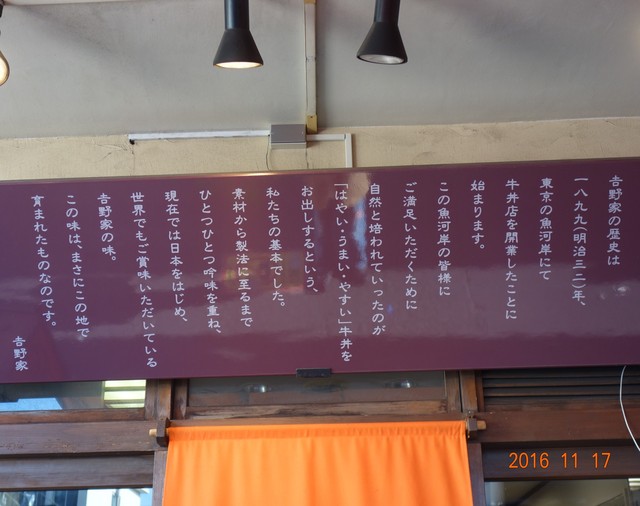 𠮷野家の歴史は
一八九九(明治三二)年、
東京の魚河岸にて
牛丼店を開業したことに
始まります。
この魚河岸の皆様に
ご満足いただくために
自然と培われていったのが
「はやい・うまい・やすい」牛丼を
お出しするという、
私たちの基本でした。
素材から製法に至るまで
ひとつひとつ吟味を重ね、
現在では日本をはじめ、
世界でもご賞味いただいている
𠮷野家の味。
この味は、まさにこの地で
育まれたものなのです。
𠮷野家
2016 11 17